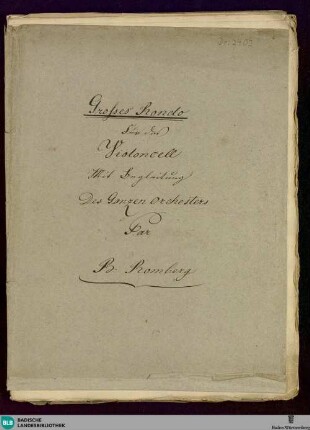 Großes Rondo
Für das
Violoncell
Mit Begleitung
Des Ganzen Orchesters
Par
B. Romberg
BLB BADISCHE
LANDESBIBLIOTHEK
Baden-Württemberg